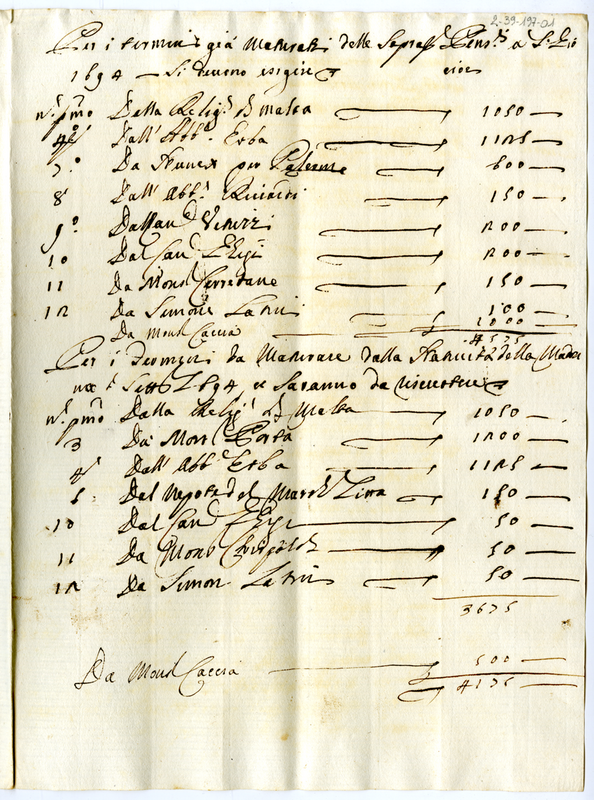 2-39-197-01
Per i termini già Maturati delle Sopras.e Pens.i a S.
1694 — Si devono esigere cioè
n.º pmo Dalla Relig.e di Malta 1050
4º Dall' Abb.e Erba 1125
7.º Da Nunez per Palermo 600
8º Dall' Abb.e 150
9º Dal Can.o 200
10 Dal Can.o 200
11 Da Mons.r Cerretane 150
12 Da Simone Latini 100
Da Mons.r Caccia 1000
4575
Per i Termini da Maturare dalla Natività della Mad
Sett.e 1694, e saranno da riscuotere
n.º pmo Dalla Relig.e di Malta 1050
3 Da Mons.r Porta 1200
4º Dall' Abb.e Erba 1125
5. Dal Nepote del March.e 150
10 Dal Can.o 50
11 Da Mons.r 50
12 Da Simon Latini 50
3675
Da Mons.r Caccia 500
4175